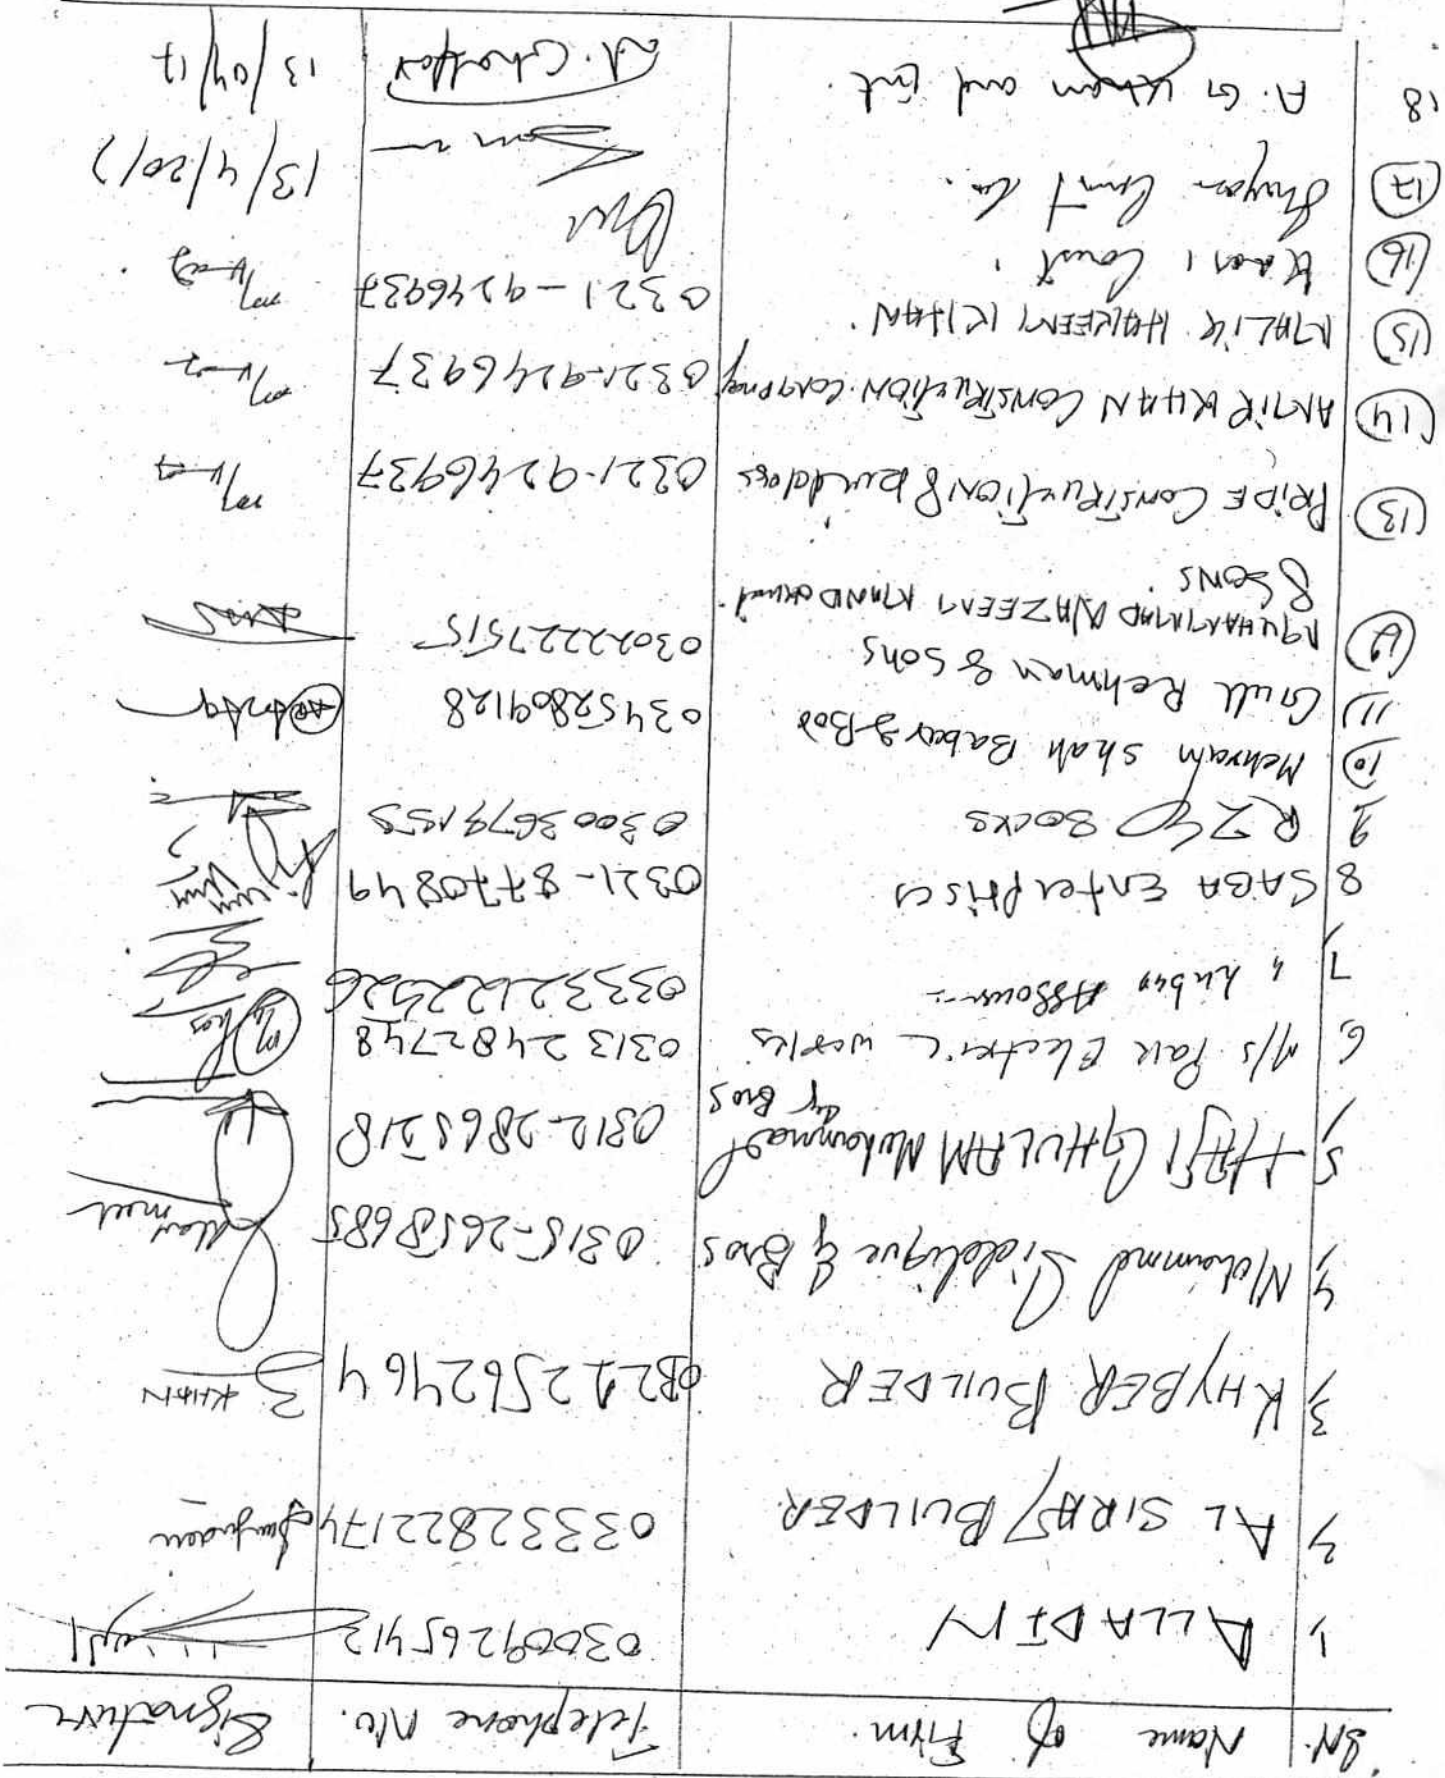 SN. Name of Firm. Telephone No. Signature
1, ALLADIN 03009265412
2, AL SIRAJ BUILDER 03332822174
3, KHYBER BUILDER 03212562464 KHAN
4, Mohammed Siddique & Bros 0315-2658685
5, HAJI GHULAM Muhammad 0312-2865218
& Bros
6, M/s Pak Electric works 0313 2482748
7, 03332122526
8 SABA Enterprises 0321-8770849
9 03003679155
10 Mehram Shah Babar & Bro 03452809128
11) Gull Rehman & Sons
12 MUHAMMAD NAZEEM 03022227515
& SONS
13 PRIDE CONSTRUCTION & builders 0321-9246937
14 AMIR KHAN CONSTRUCTION Company 0321-9246937
15 MALIK HAKEEM KHAN. 0321-9246937
16 Const.
17 13/4/2017
18 A. G Khan and Ent. A. Ghaffar 13/04/17